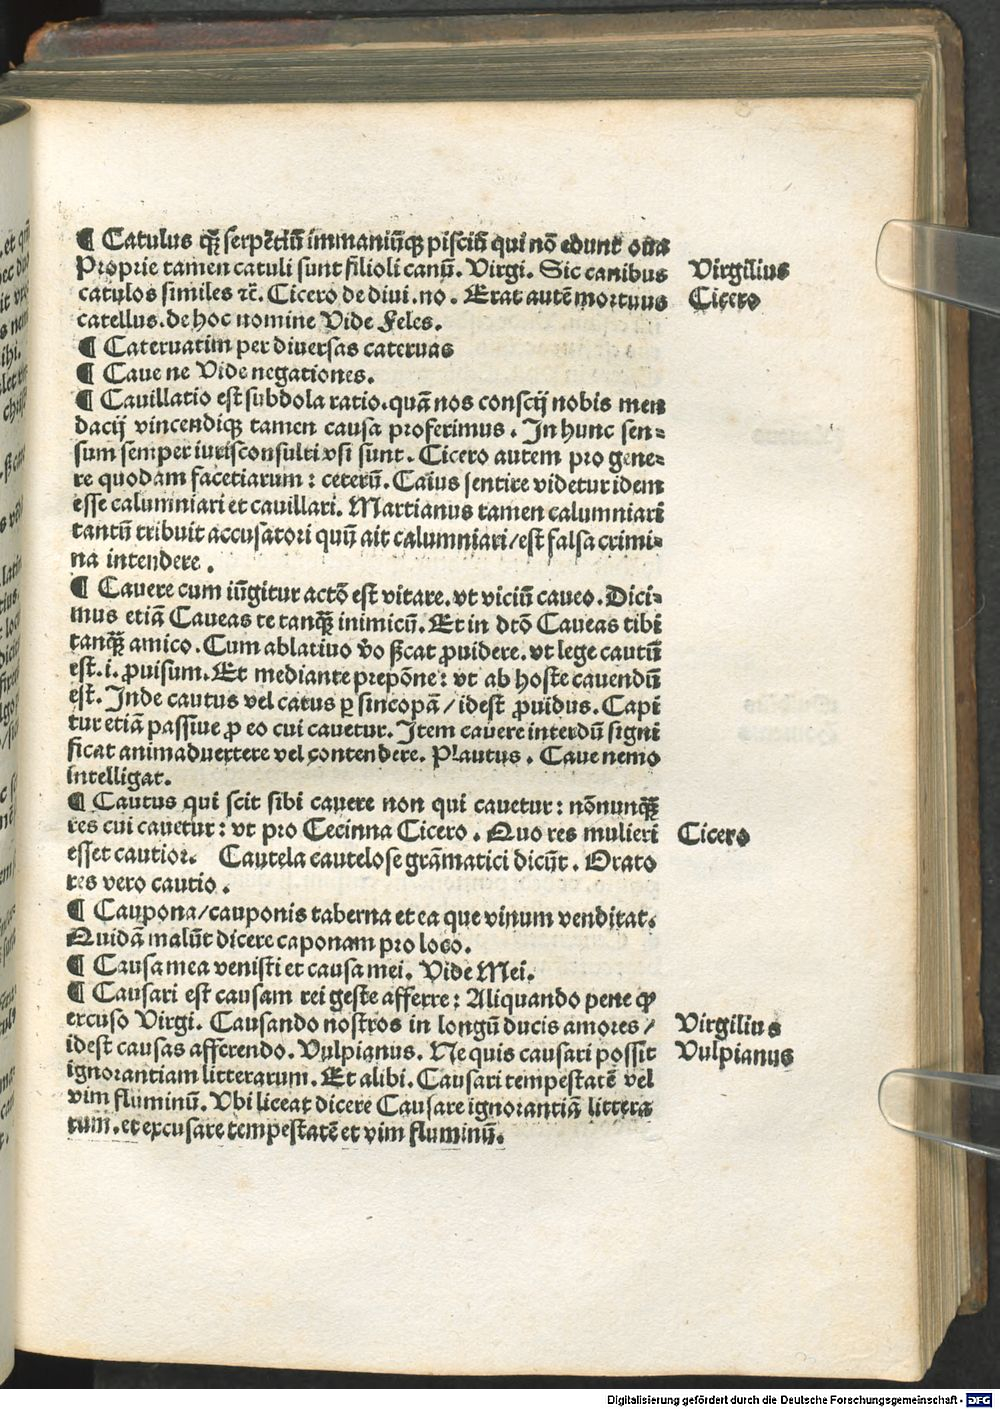 ¶ Catulus qꝫ̃ serpẽtiũ immaniũqꝫ pisciũ qui nõ edunt oua
Proprie tamen catuli sunt filioli canũ. Virgi. Sic canibus
catulos similes ⁊c̃. Cicero de diui. no. Erat autẽ mortuus
catellus. de hoc nomine Vide Feles.
¶ Cateruatim per diuersas cateruas
¶ Caue ne Vide negationes.
¶ Cauillatio est subdola ratio. quã nos conscij nobis men
dacij vincendiqꝫ tamen causa proferimus. In hunc sen⸗
sum semper iurisconsulti vsi sunt. Cicero autem pro gene⸗
re quodam facetiarum : ceterũ. Caius sentire videtur idem
esse calumniari et cauillari. Martianus tamen calumniari
tantũ tribuit accusatori quũ ait calumniari / est falsa crimi⸗
na intendere.
¶ Cauere cum iũgitur actõ est vitare. vt viciũ caueo. Dici⸗
mus etiã Caueas te tanqꝫ̃ inimicũ. Et in dtõ Caueas tibi
tanqꝫ̃ amico. Cum ablatiuo v̊o ßcat ꝓuidere. vt lege cautũ
est. i. ꝓuisum. Et mediante prepõne : vt ab hoste cauendũ
est. Inde cautus vel catus ꝑ sincopã / idest ꝓuidus. Capi
tur etiã passiue ꝓ eo cui cauetur. Item cauere interdũ signi
ficat animaduertere vel contendere. Plautus. Caue nemo
intelligat.
¶ Cautus qui scit sibi cauere non qui cauetur : nõnunqꝫ̃
res cui cauetur : vt pro Cecinna Cicero. Quo res mulieri
esset cautior. Cautela cautelose grãmatici dicũt. Orato
res vero cautio.
¶ Caupona / cauponis taberna et ea que vinum venditat.
Quidã malũt dicere caponam pro loco.
¶ Causa mea venisti et causa mei. Vide Mei.
¶ Causari est causam rei geste afferre : Aliquando pene ꝙ
excuso Virgi. Causando nostros in longũ ducis amores /
idest causas afferendo. Vulpianus. Ne quis causari possit
ignorantiam litterarum. Et alibi. Causari tempestatẽ vel
vim fluminũ. Vbi liceat dicere Causare ignorantiã littera
rum. et excusare tempestatẽ et vim fluminũ.
Virgilius
Cicero
Cicero
Virgilius
Vulpianus
Digitalisierung gefördert durch die Deutsche Forschungsgemeinschaft - DFG